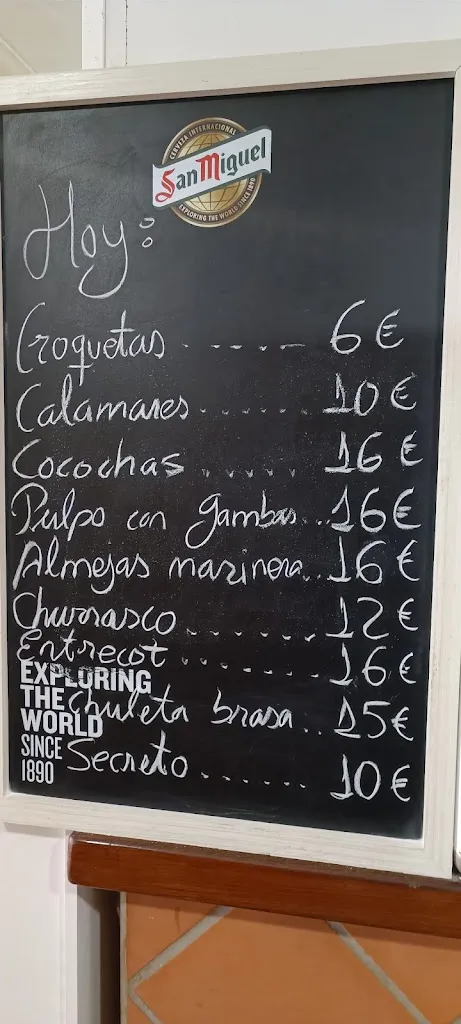 CERVEZA INTERNACIONAL
San Miguel
EXPLORING THE WORLD SINCE 1890
Hoy:
Croquetas ...... 6€
Calamares ...... 10€
Cocochas ..... 16€
Pulpo con gambas .. 16€
Almejas marinera .. 16€
Churrasco ....... 12€
Entrecot ....... 16€
EXPLORING
THE Chuleta brasa .. 15€
WORLD
SINCE Secreto ...... 10€
1890